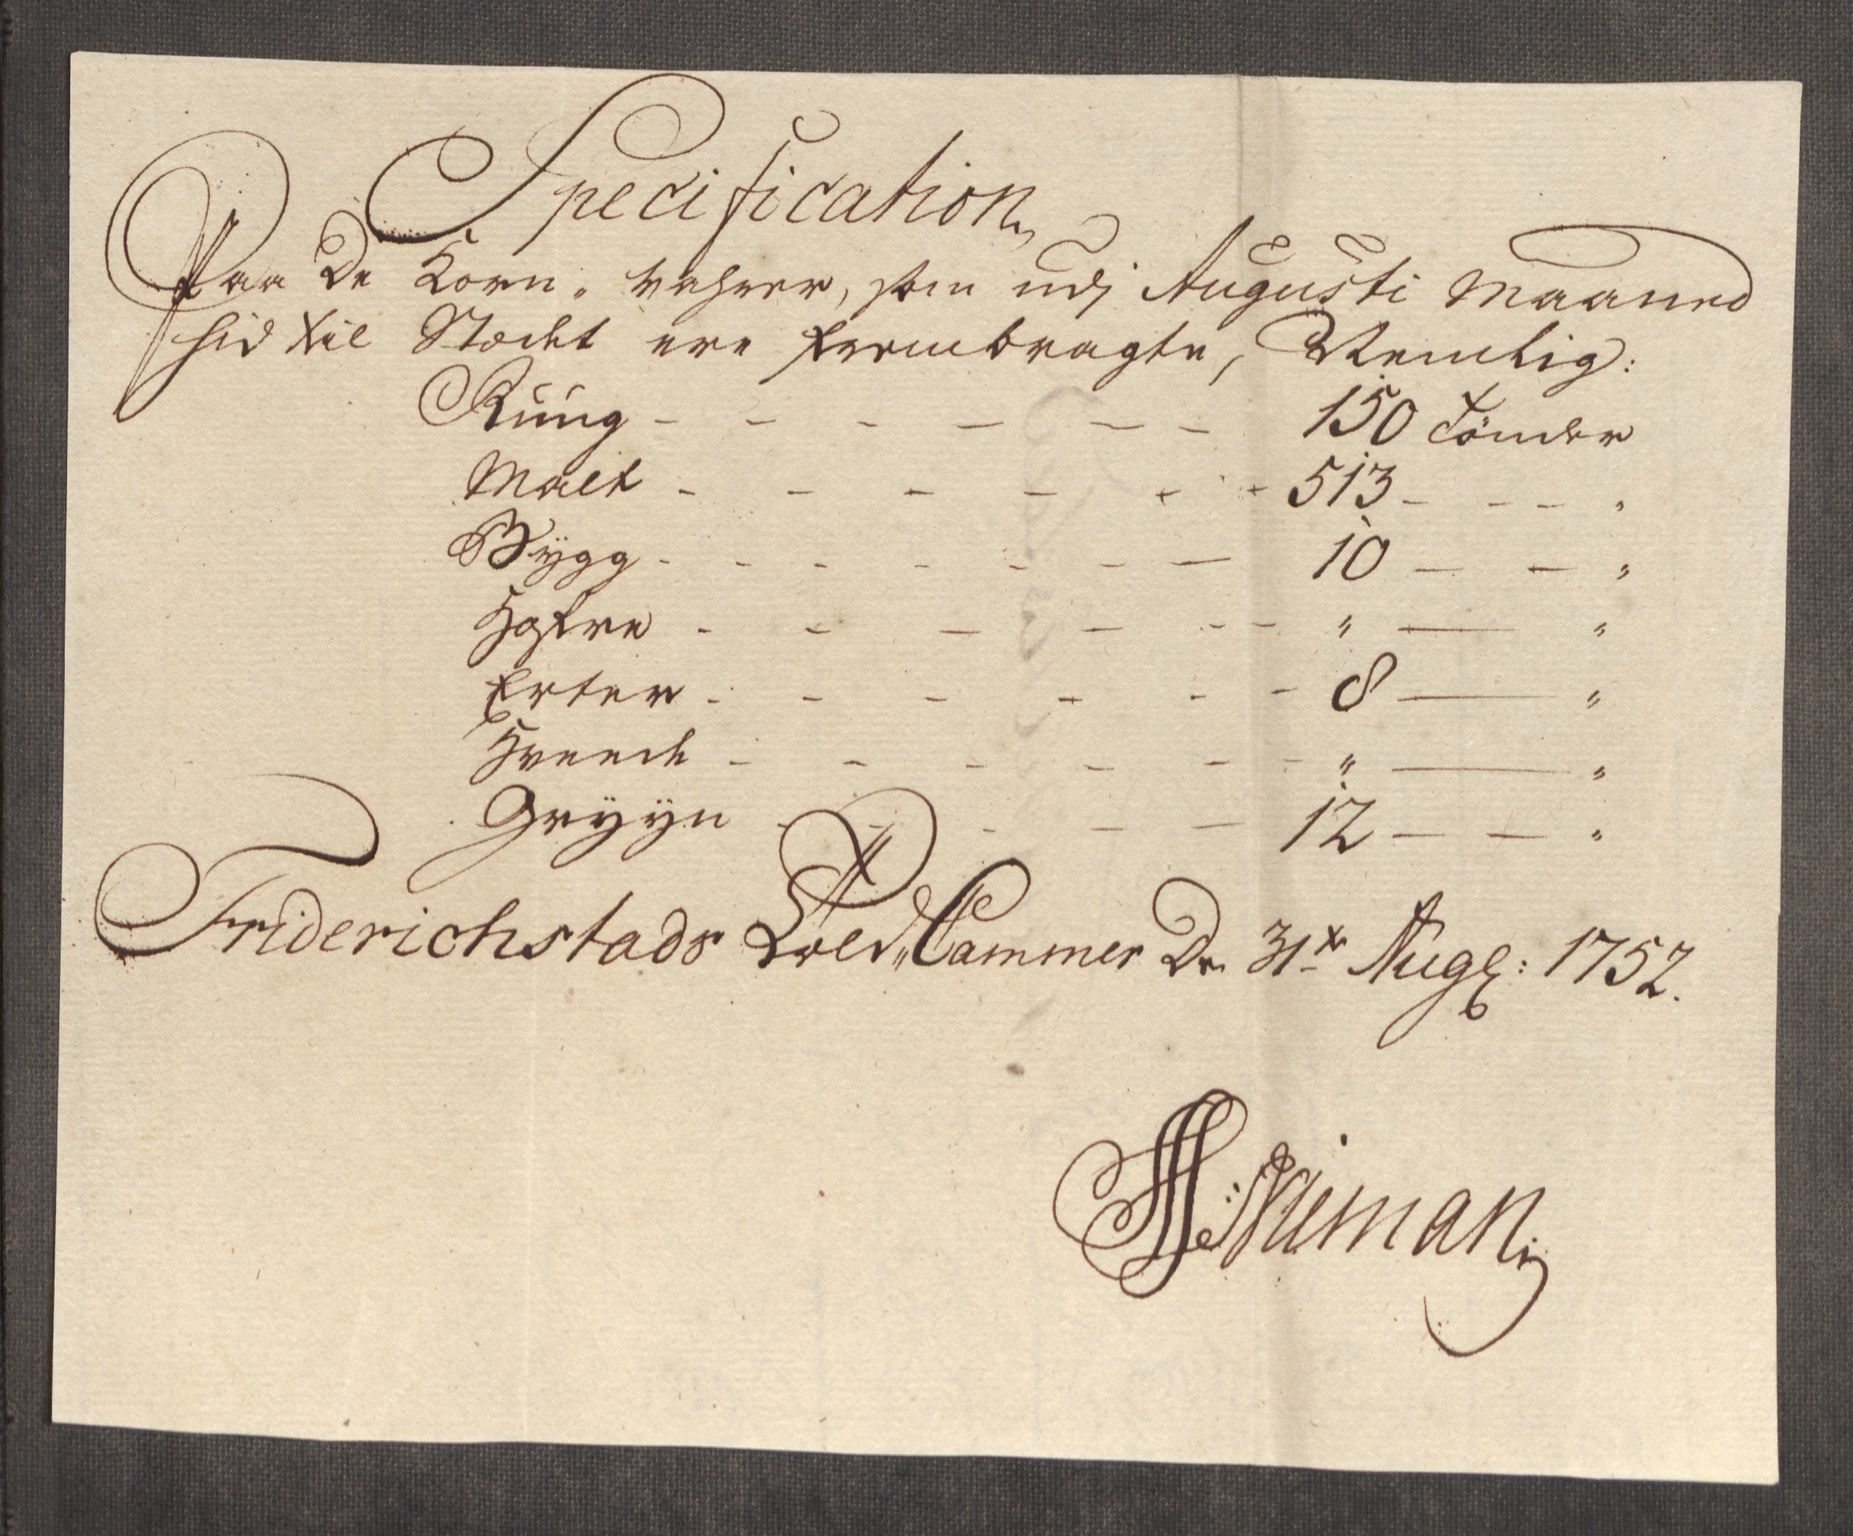 Specification
Paa de Korn-Vahrer, som udj Augusti Maaned
hid til Stædet ere frembragte, Nemlig:
Rúúg - - - - - - 150 Tönder
Malt - - - - - - 513 - - - "
Bÿgg - - - - - - - 10 - - "
Hafre - - - - - - " - "
Erter - - - - - - 8 - "
Hveede - - - - - - " - "
Grÿÿn - - - - - 12 - - "
Friderichstads Told-Cammer Dn 31te Aug: 1752.
Nieman